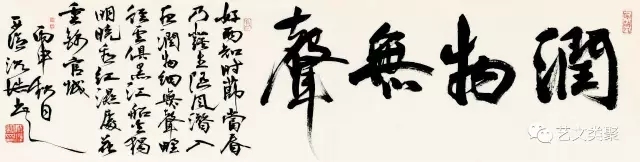 潤物無聲
好雨知時節當春
乃發生隨風潛入
夜潤物細無聲野
徑雲俱黑江船火獨
明曉看紅濕處花
重錦官城
丙申秋日
艺文类聚